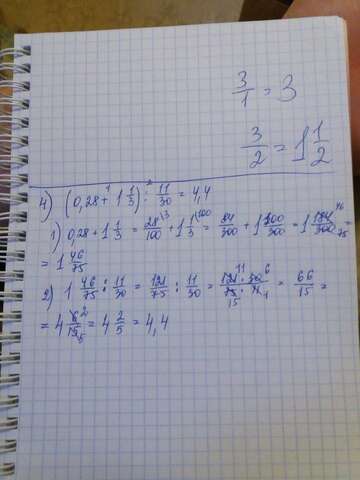 3/1 = 3
3/2 = 1 1/2
4) (0,28 + 1 1/3) : 11/30 = 4,4
1) 0,28 + 1 1/3 = 28/100 + 1 1/3 = 84/300 + 1 100/300 = 1 184/300 =
= 1 46/75
2) 1 46/75 : 11/30 = 121/75 : 11/30 = 66/15 =
= 4 6/15 = 4 2/5 = 4,4